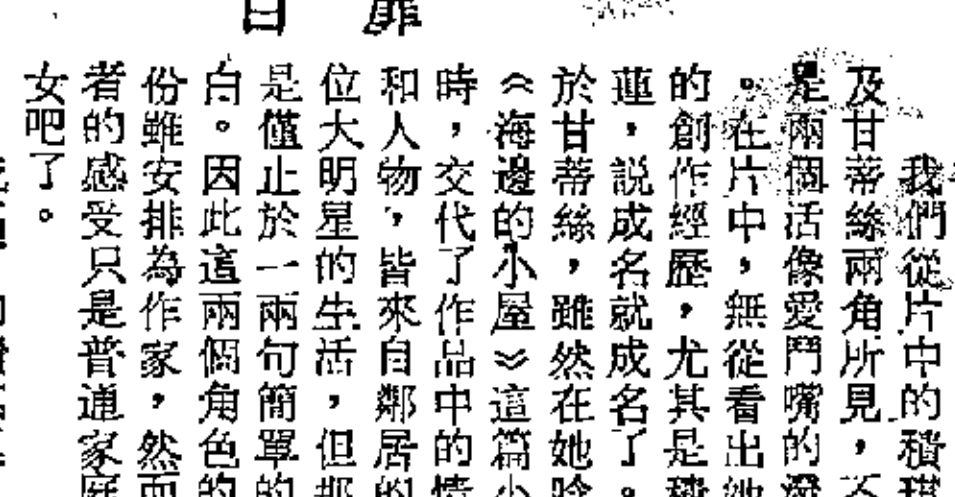 我們從片中的積琪
及甘蒂絲兩角所見，不
是兩個活像愛鬥嘴的潑
。在片中，無從看出她
的創作經歷，尤其是積
蓮，説成名就成名了。
於甘蒂絲，雖然在她唸
《海邊的小屋》這篇小
時，交代了作品中的情
和人物，皆來自鄰居的
位大明星的生活，但那
是僅止於一兩句簡單的
白。因此這兩個角色的
份雖安排為作家，然而
者的感受只是普通家庭
女吧了。